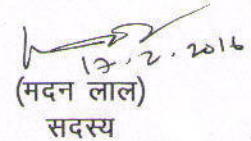 17.2.2016
(मदन लाल)
सदस्य